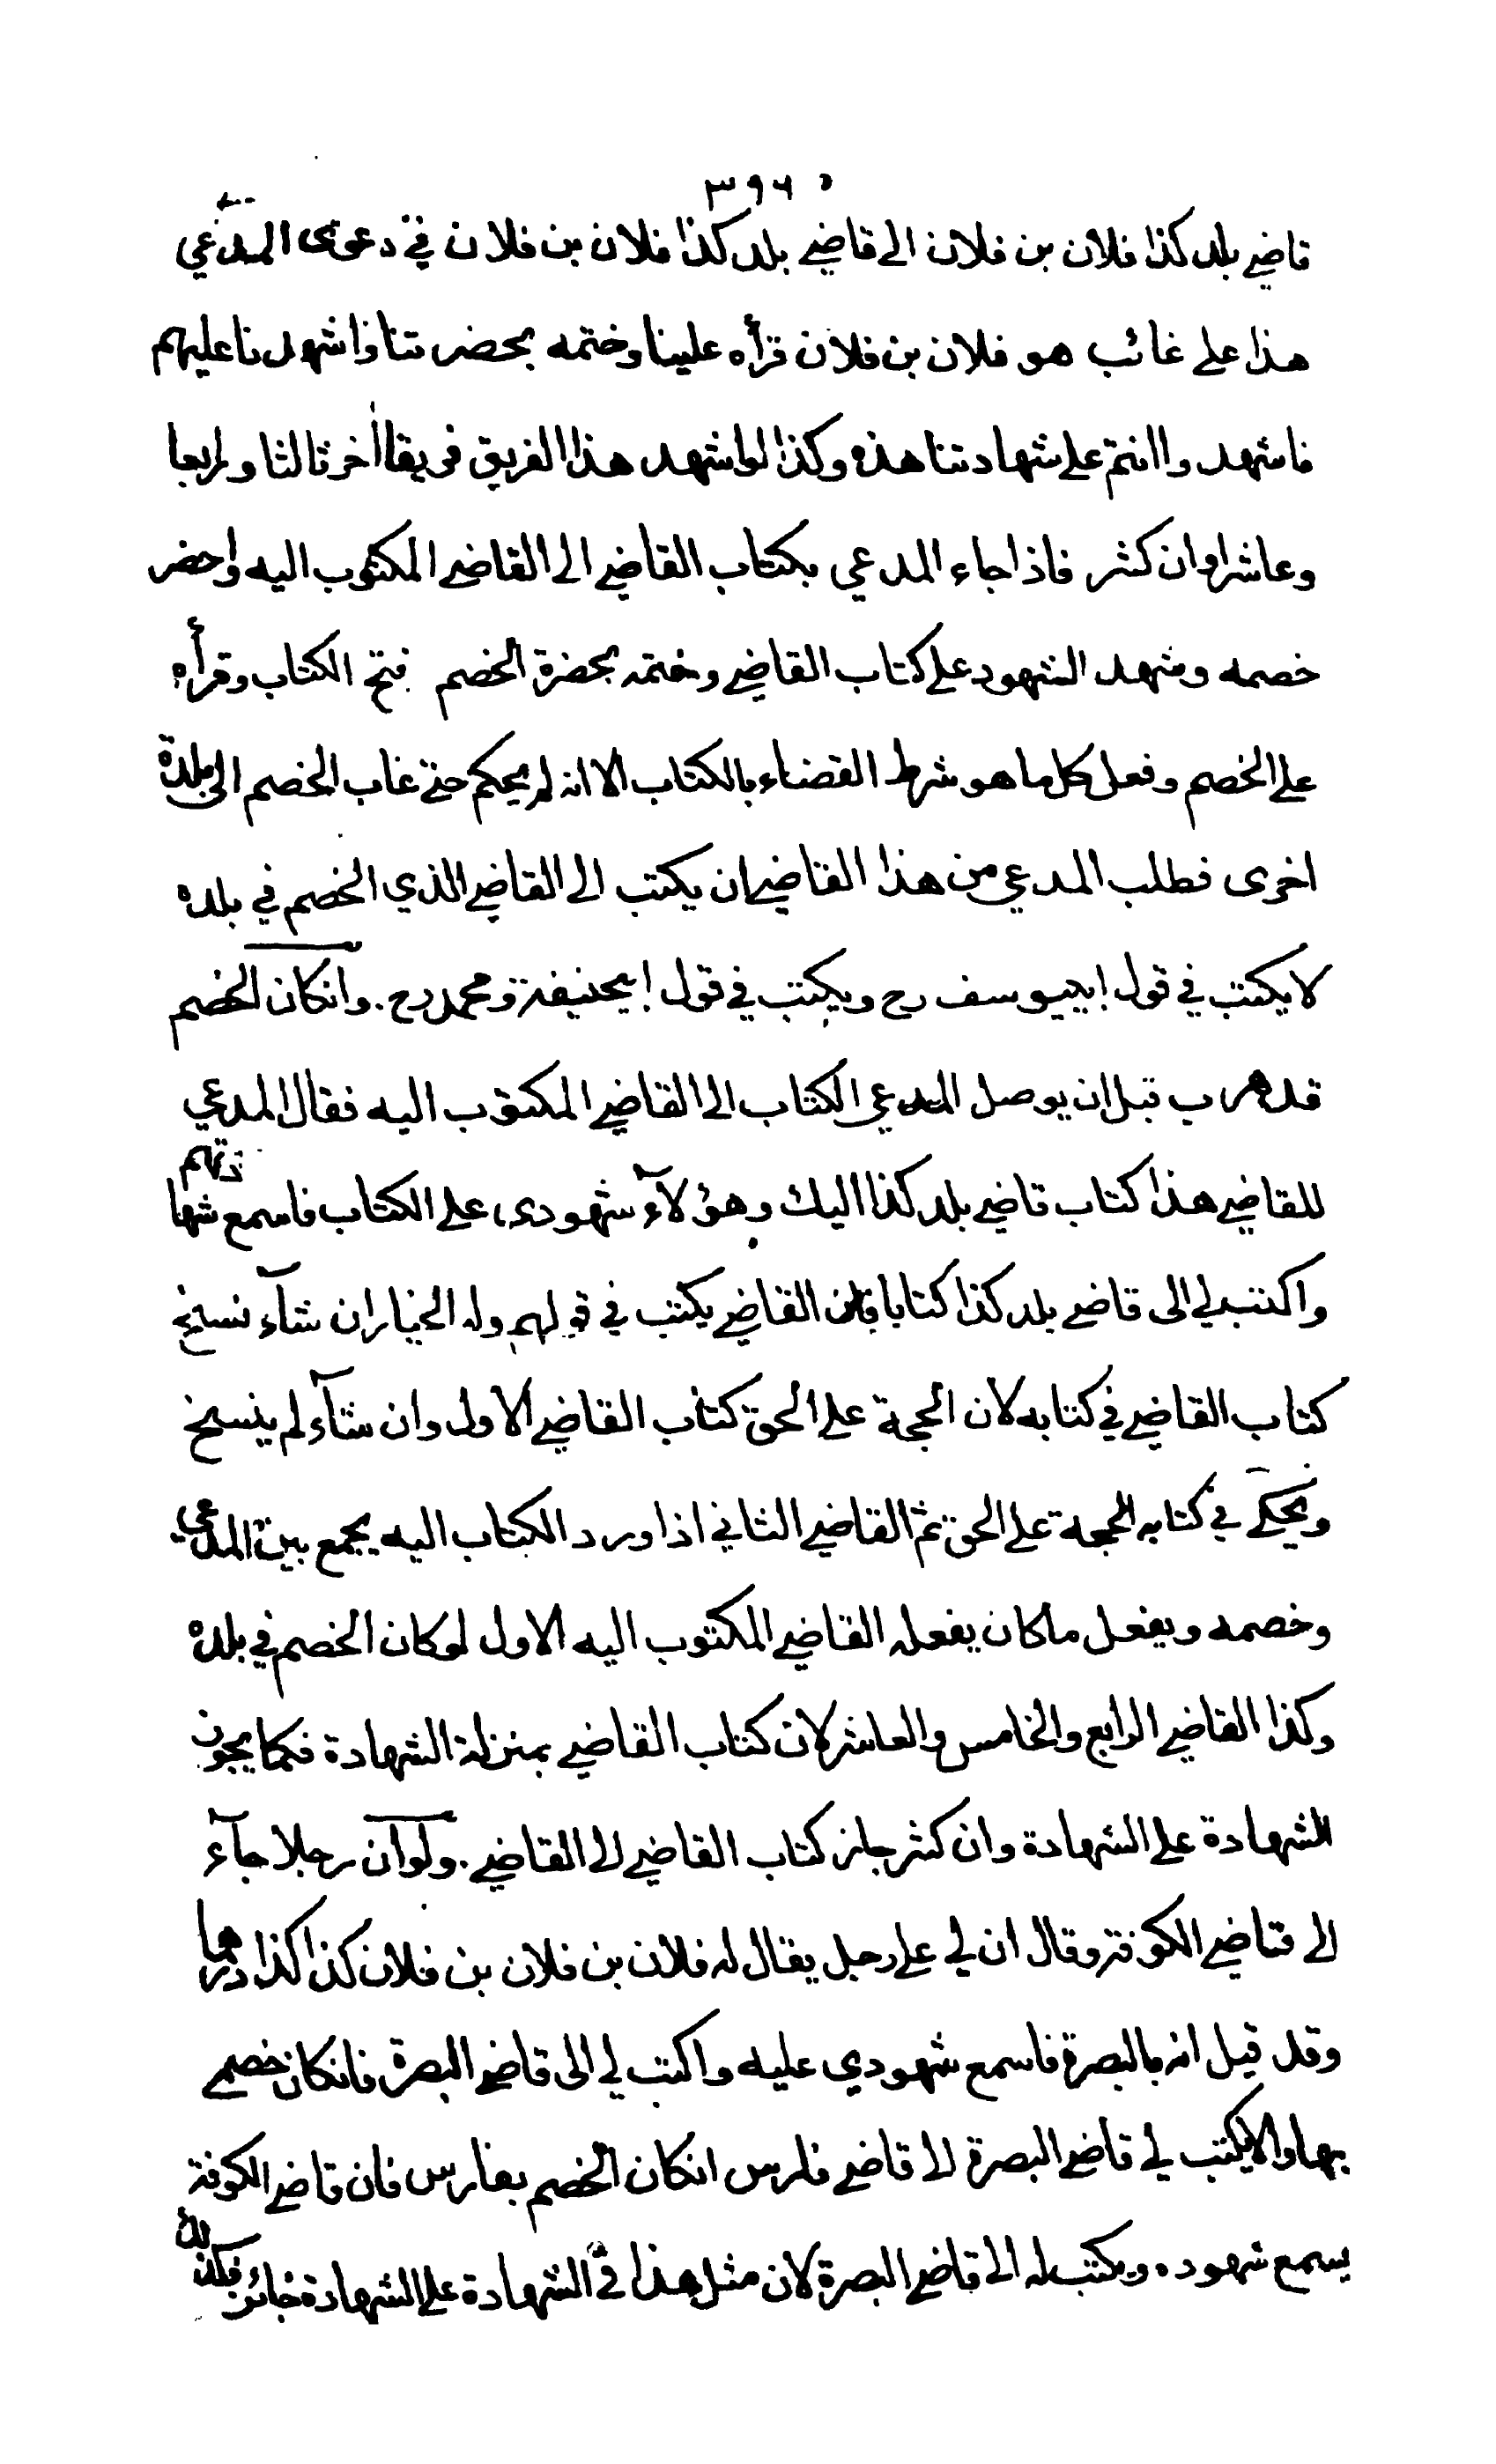 ٣٩٦
قاضي بلد كذا فلان بن فلان الى قاضي بلد كذا فلان بن فلان في دعوى المدعي
هذا على غائب هو فلان بن فلان قرأه علينا وختمه بحضرتنا واشهدنا عليهم
فاشهدوا انتم على شهادتنا هذه وكذا لو اشهد هذا الفريق فريقا اخر ثالثا ورابعا
وعاشرا وان كثر فاذا جاء المدعي بكتاب القاضي الى القاضي المكتوب اليه واحضر
خصمه وشهد الشهود على كتاب القاضي وختمه بحضرة الخصم فتح الكتاب وقرأه
على الخصم وفعل كل ما هو شرط القضاء بالكتاب الا انه لم يحكم حتى غاب الخصم الى بلدة
اخرى فطلب المدعي من هذا القاضي ان يكتب الى القاضي الذي الخصم في بلده
لا يكتب في قول ابي يوسف رح ويكتب في قول ابي حنيفة ومحمد رح . وان كان الخصم
قد هرب قبل ان يوصل المدعي الكتاب الى القاضي المكتوب اليه فقال المدعي
للقاضي هذا كتاب قاضي بلد كذا اليك وهؤلآء شهودي على الكتاب فاسمع شهادتهم
واكتب لي الى قاضي بلد كذا كتابا فان القاضي يكتب في قولهم وله الخيار ان شآء نسخ
كتاب القاضي في كتابه لان الحجة على الحق كتاب القاضي الاول وان شآء لم ينسخ
ويحكي في كتابه الحجة على الحق ثم القاضي الثاني اذا ورد الكتاب اليه يجمع بين المدعي
وخصمه ويفعل ما كان يفعله القاضي المكتوب اليه الاول لو كان الخصم في بلده
وكذا القاضي الرابع والخامس والعاشر لان كتاب القاضي بمنزلة الشهادة فكما يجوز
الشهادة على الشهادة وان كثر جاز كتاب القاضي الى القاضي . ولو ان رجلا جآء
الى قاضي الكوفة وقال ان لي على رجل يقال له فلان بن فلان بن فلان كذا كذا درهما
وقد قيل انه بالبصرة فاسمع شهودي عليه واكتب لي الى قاضي البصرة فان كان خصمي
بها والا يكتب لي قاضي البصرة الى قاضي فارس ان كان الخصم بفارس فان قاضي الكوفة
يسمع شهوده ويكتب له الى قاضي البصرة لان مثل هذا في الشهادة على الشهادة جائز فكذلك